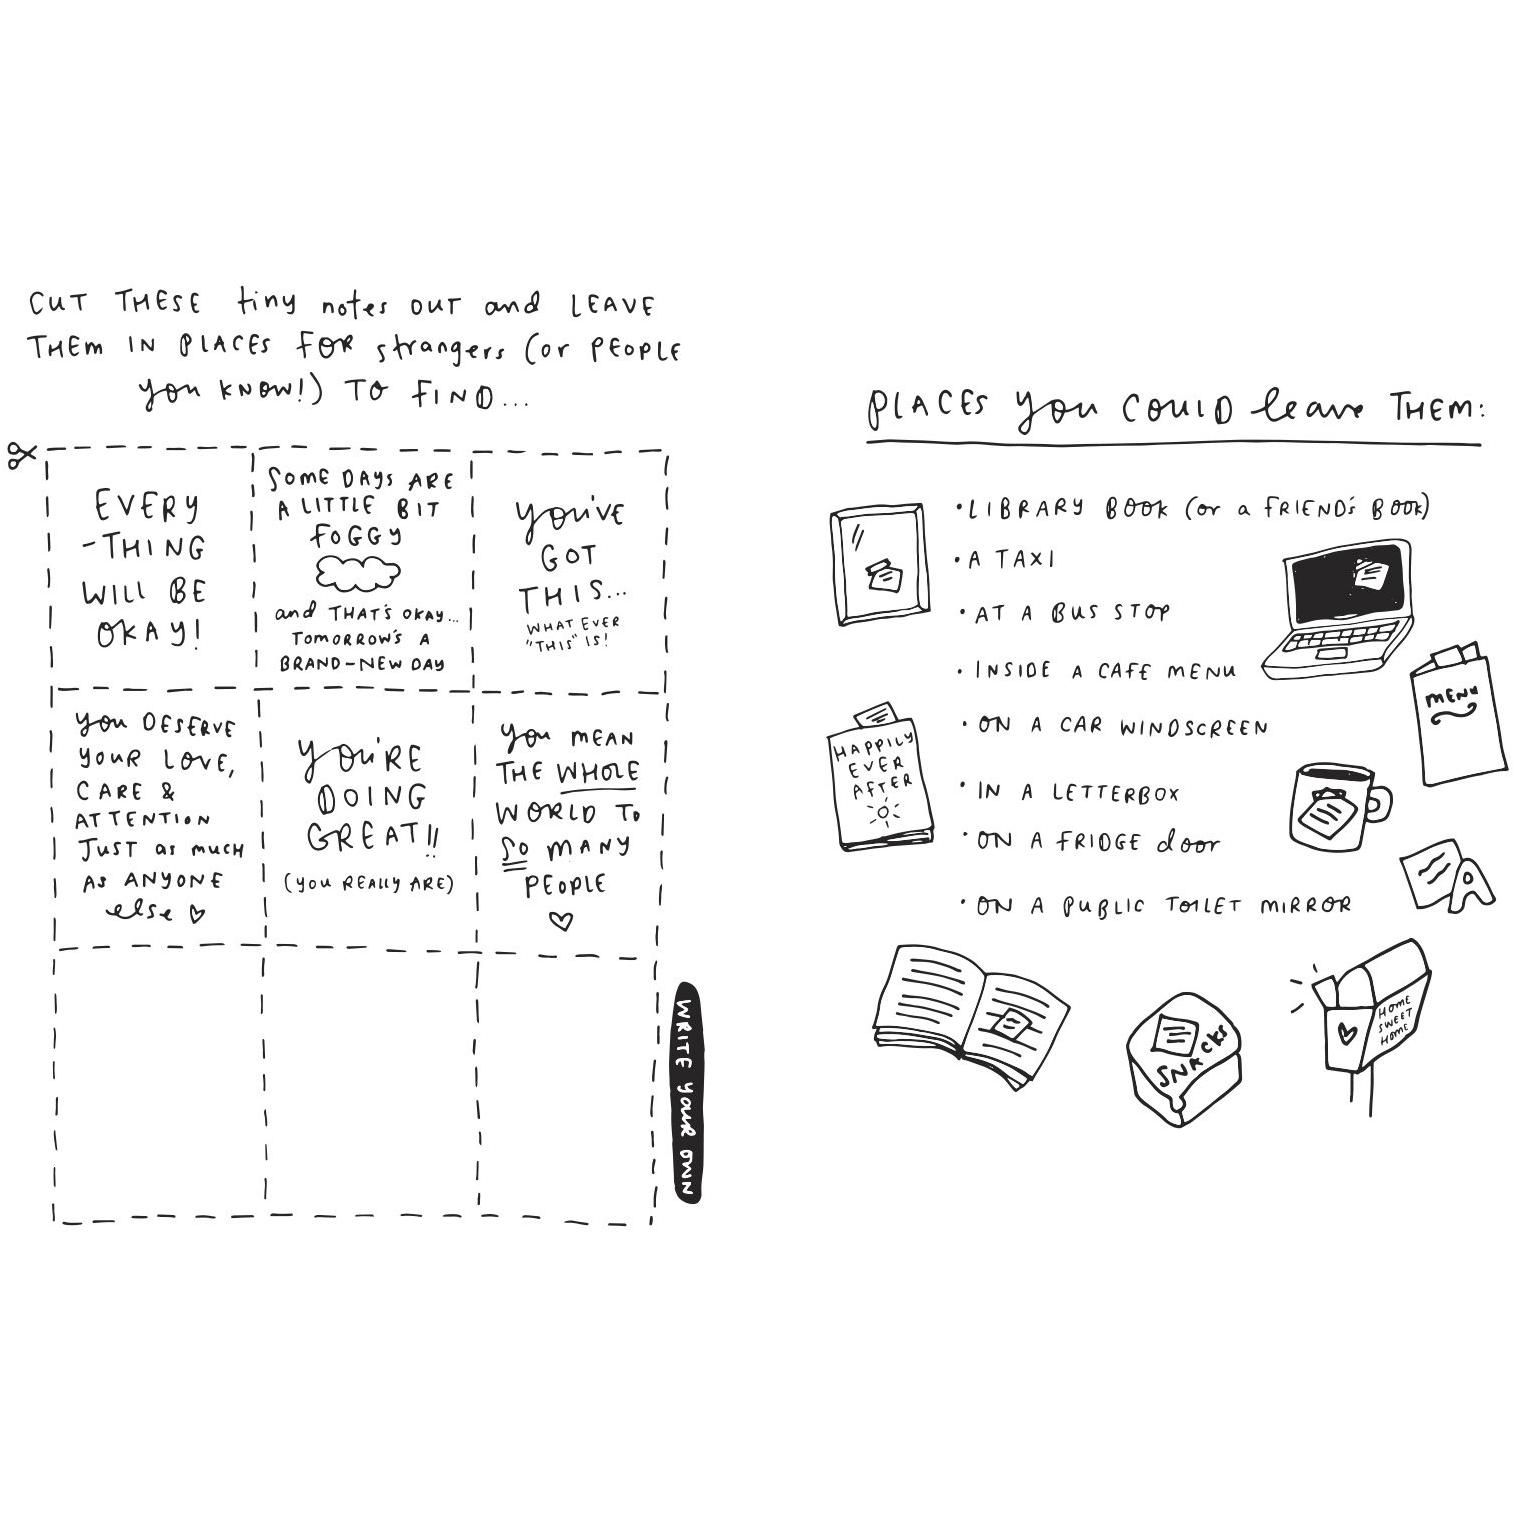 CUT THESE tiny notes OUT and LEAVE
THEM IN PLACES FOR strangers (or PEOPLE
you KNOW!) TO FIND...
EVERY
-THING
WILL BE
OKAY!
SOME DAYS ARE
A LITTLE BIT
FOGGY
and THAT'S OKAY...
TOMORROW'S A
BRAND-NEW DAY
you'VE
GOT
THIS...
WHAT EVER
"THIS" IS!
you DESERVE
YOUR LOVE,
CARE &
ATTENTION
JUST as much
AS ANYONE
else
you'RE
DOING
GREAT!!
(you REALLY ARE)
you MEAN
THE WHOLE
WORLD TO
SO MANY
PEOPLE
WRITE YOUR OWN
PLACES you COULD leave THEM:
• LIBRARY BOOK (or a FRIEND'S BOOK)
• A TAXI
• AT A BUS STOP
• INSIDE A CAFE MENU
• ON A CAR WINDSCREEN
• IN A LETTERBOX
• ON A FRIDGE door
• ON A PUBLIC TOILET MIRROR
MENU
HAPPILY
EVER
AFTER
A
SNACKS
HOME
SWEET
HOME